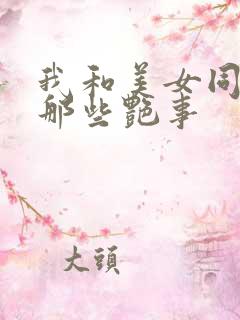 我和美女同
那些艷事
大頭